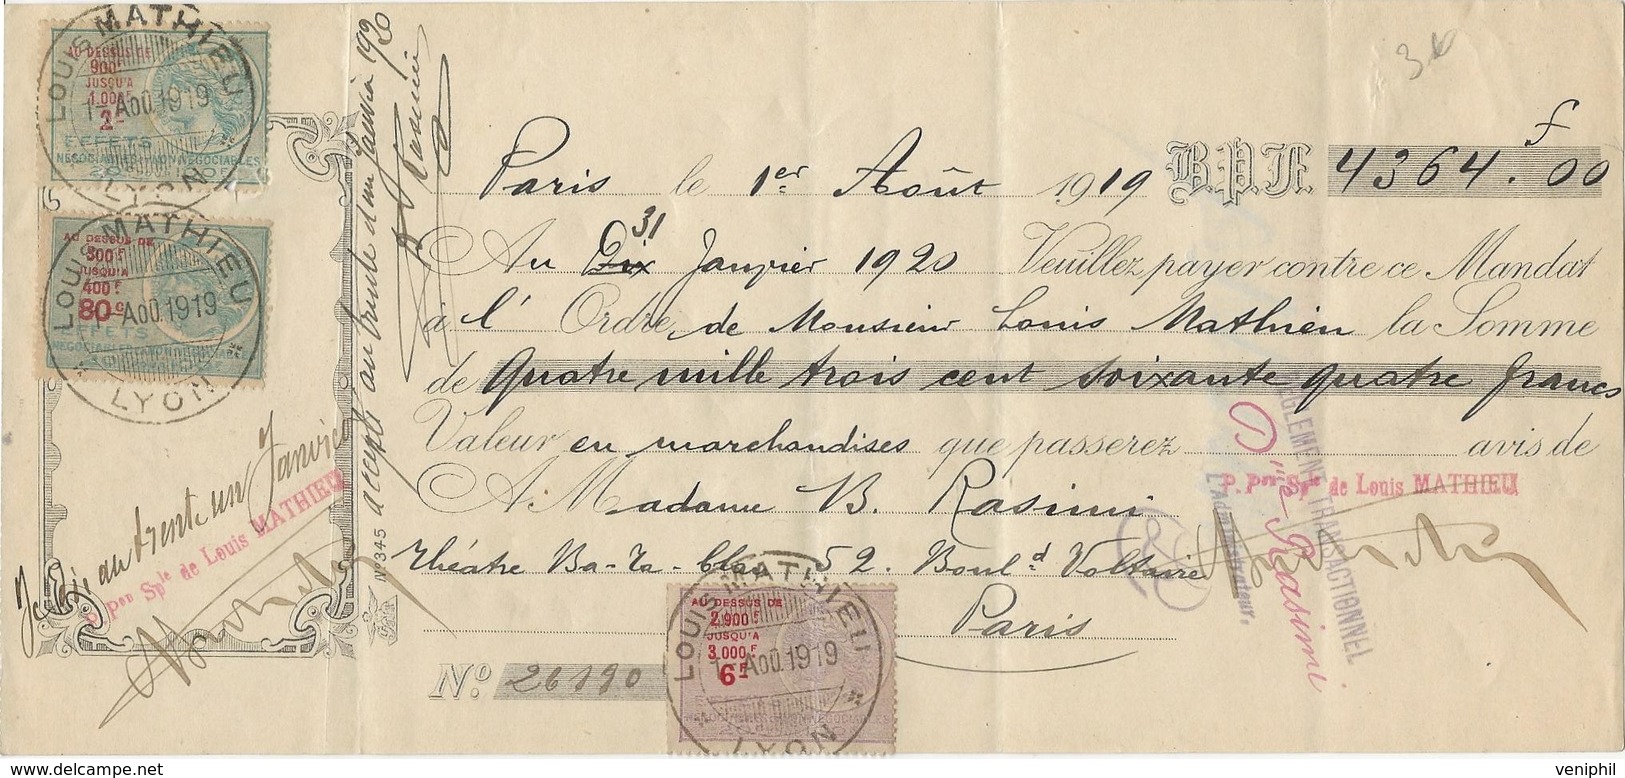 LOUIS MATHIEU
LYON
1-AOÛ.1919
AU DESSUS DE
900F
JUSQU'A
1.000F
2F
EFFETS
NEGOCIABLES NON NEGOCIABLES
LOUIS MATHIEU
LYON
1-AOÛ.1919
AU DESSUS DE
300F
JUSQU'A
400F
80c
EFFETS
30
Paris le 1er Août 1919 B.P.F. 4364.f00
31
Au Dix Janvier 1920 Veuillez payer contre ce Mandat
à l' Ordre de Monsieur Louis Mathieu la Somme
de Quatre mille trois cent soixante quatre francs
Valeur en marchandises que passerez avis de
A Madame B. Rasimi
théâtre Ba-Ta-Clan 52. Boul.d Voltaire
Paris
No. 26190
accepté au trente et un Janvier 1920
B Rasimi
au trente un Janvier
P. Pon Sple de Louis MATHIEU
No 345
P. Pon Sple de Louis MATHIEU
TRANSACTIONNEL
L'administrateur,
Dre Rasimi
LOUIS MATHIEU
LYON
1-AOÛ.1919
AU DESSUS DE
2.900F
JUSQU'A
3.000F
6F
veniphil